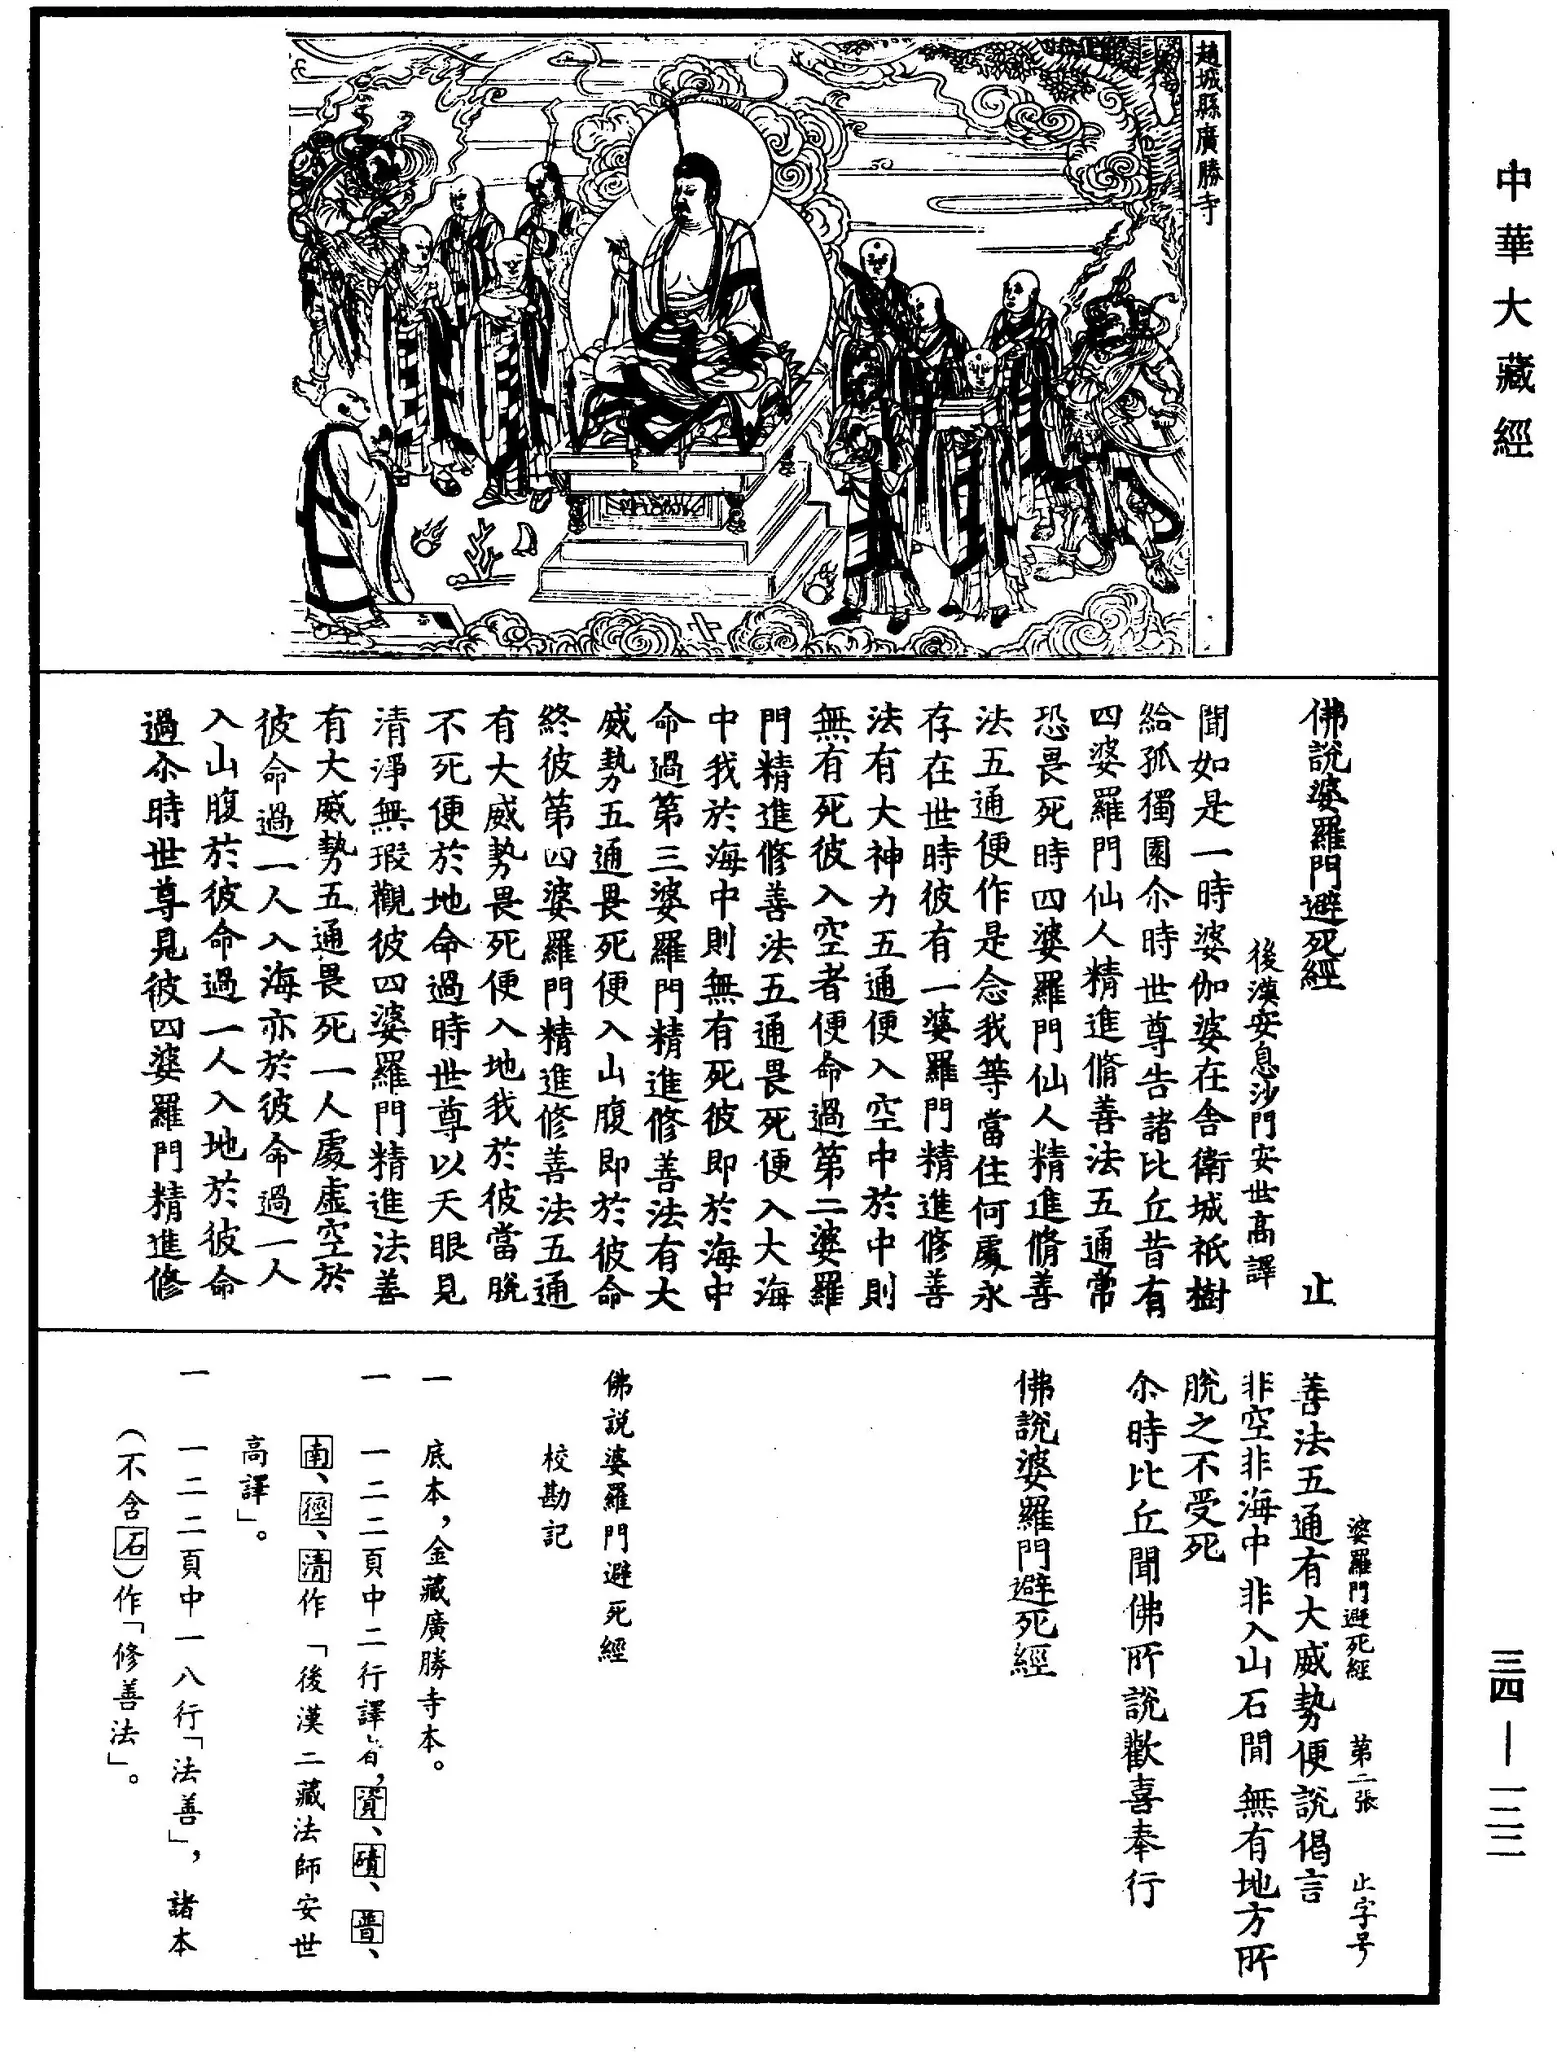 中華大藏經
三四—一二二
趙城縣廣勝寺
佛說婆羅門避死經 止
後漢安息沙門安世高譯
聞如是一時婆伽婆在舍衛城祇樹
給孤獨園尒時世尊告諸比丘昔有
四婆羅門仙人精進脩善法五通常
恐畏死時四婆羅門仙人精進脩善
法五通便作是念我等當住何處永
存在世時彼有一婆羅門精進修善
法有大神力五通便入空中於中則
無有死彼入空者便命過第二婆羅
門精進修善法五通畏死便入大海
中我於海中則無有死彼即於海中
命過第三婆羅門精進修善法有大
威勢五通畏死便入山腹即於彼命
終彼第四婆羅門精進修善法五通
有大威勢畏死便入地我於彼當脫
不死便於地命過時世尊以天眼見
清淨無瑕觀彼四婆羅門精進法善
有大威勢五通畏死一人處虛空於
彼命過一人入海亦於彼命過一人
入山腹於彼命過一人入地於彼命
過尒時世尊見彼四婆羅門精進修
婆羅門避死經 第二張 止字号
善法五通有大威勢便說偈言
非空非海中 非入山石間 無有地方所
脫之不受死
尒時比丘聞佛所說歡喜奉行
佛說婆羅門避死經
佛說婆羅門避死經
校勘記
一 底本，金藏廣勝寺本。
一 一二二頁中二行譯者，資、磧、普、
南、徑、清作「後漢三藏法師安世
高譯」。
一 一二二頁中一八行「法善」，諸本
（不含石）作「修善法」。